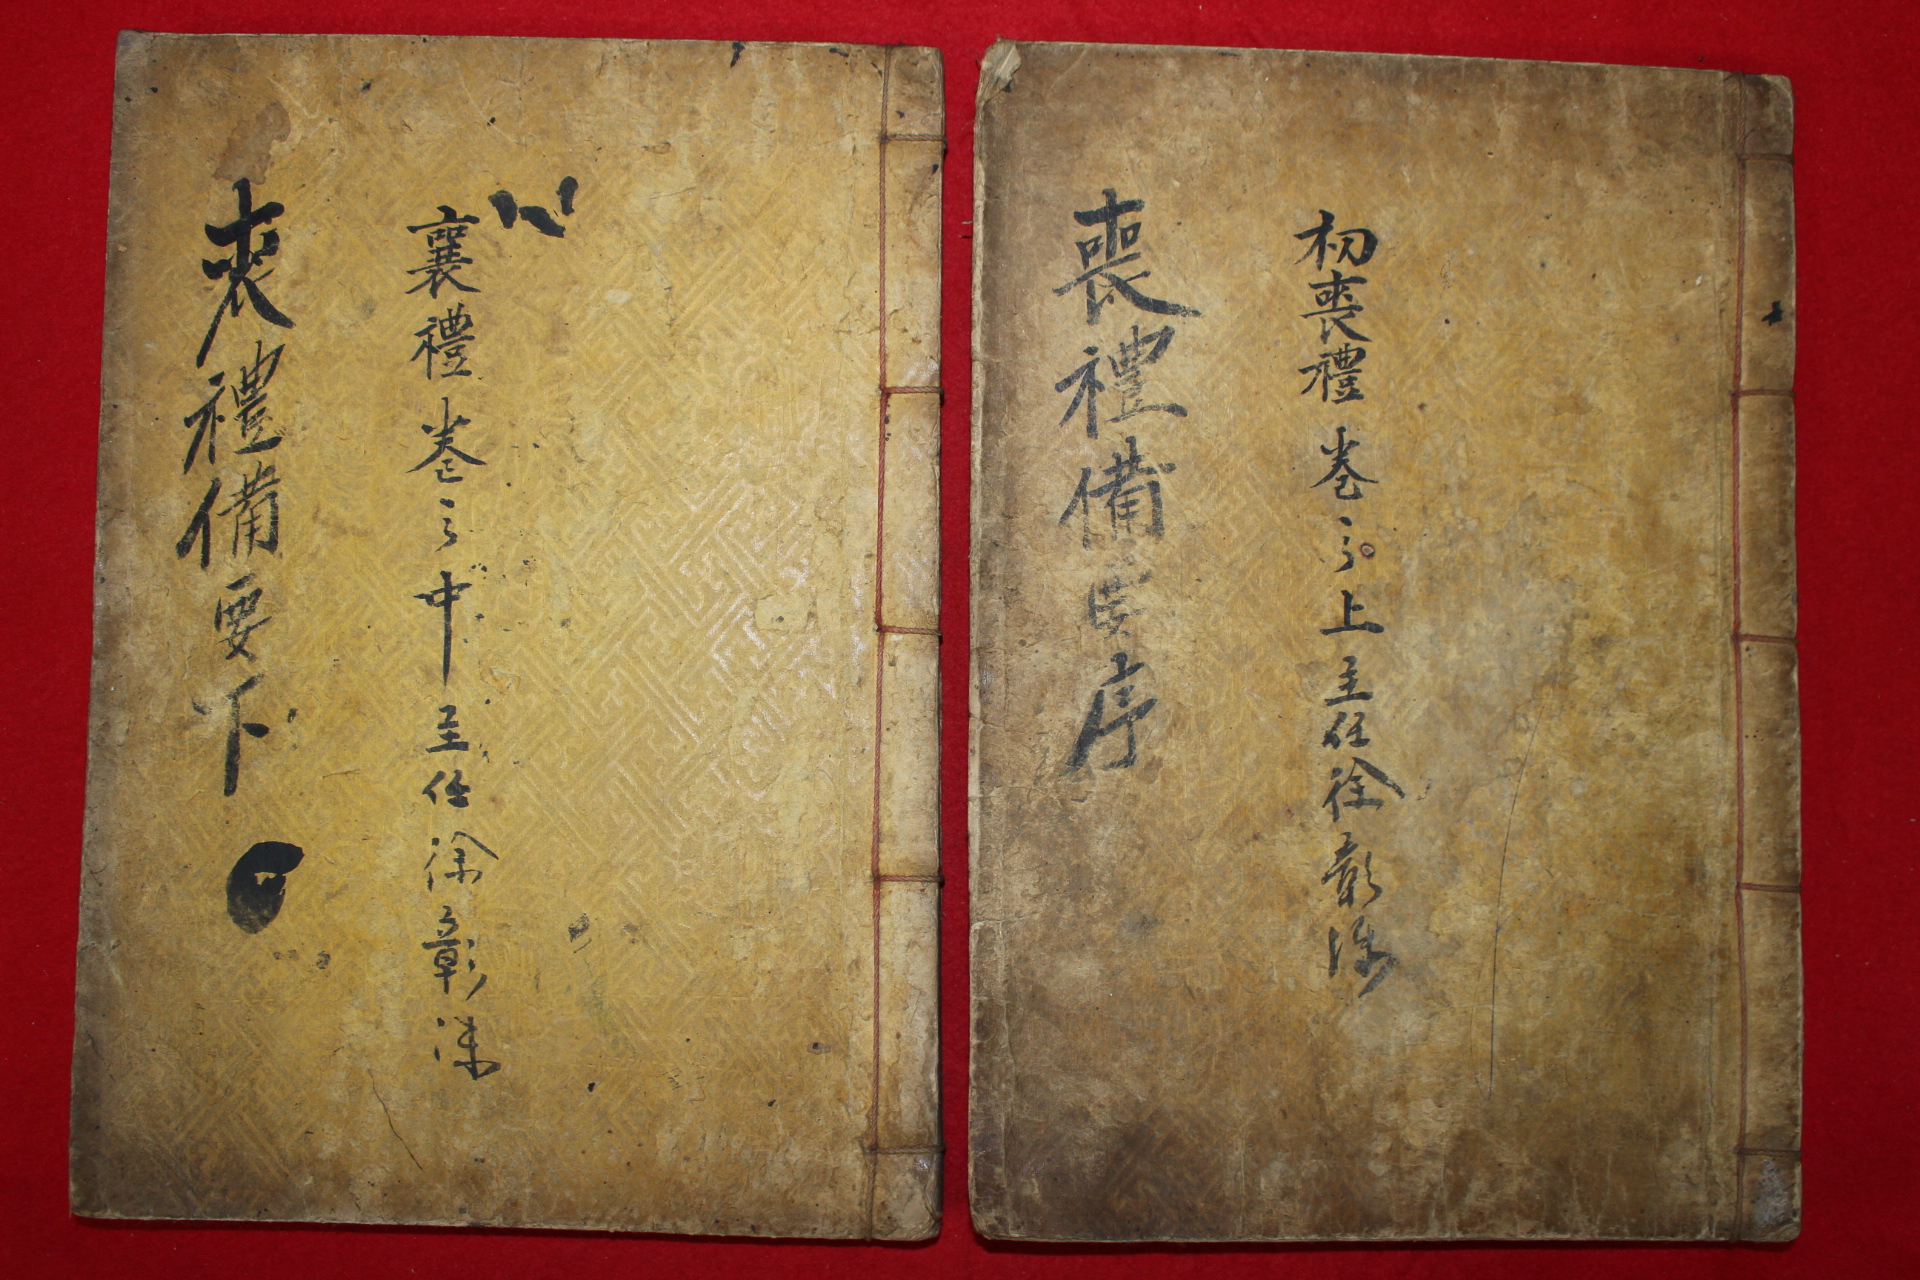 初喪禮 卷之上 主任徐彰洙
喪禮備要序
襄禮 卷之中 主任 徐彰洙
喪禮備要下